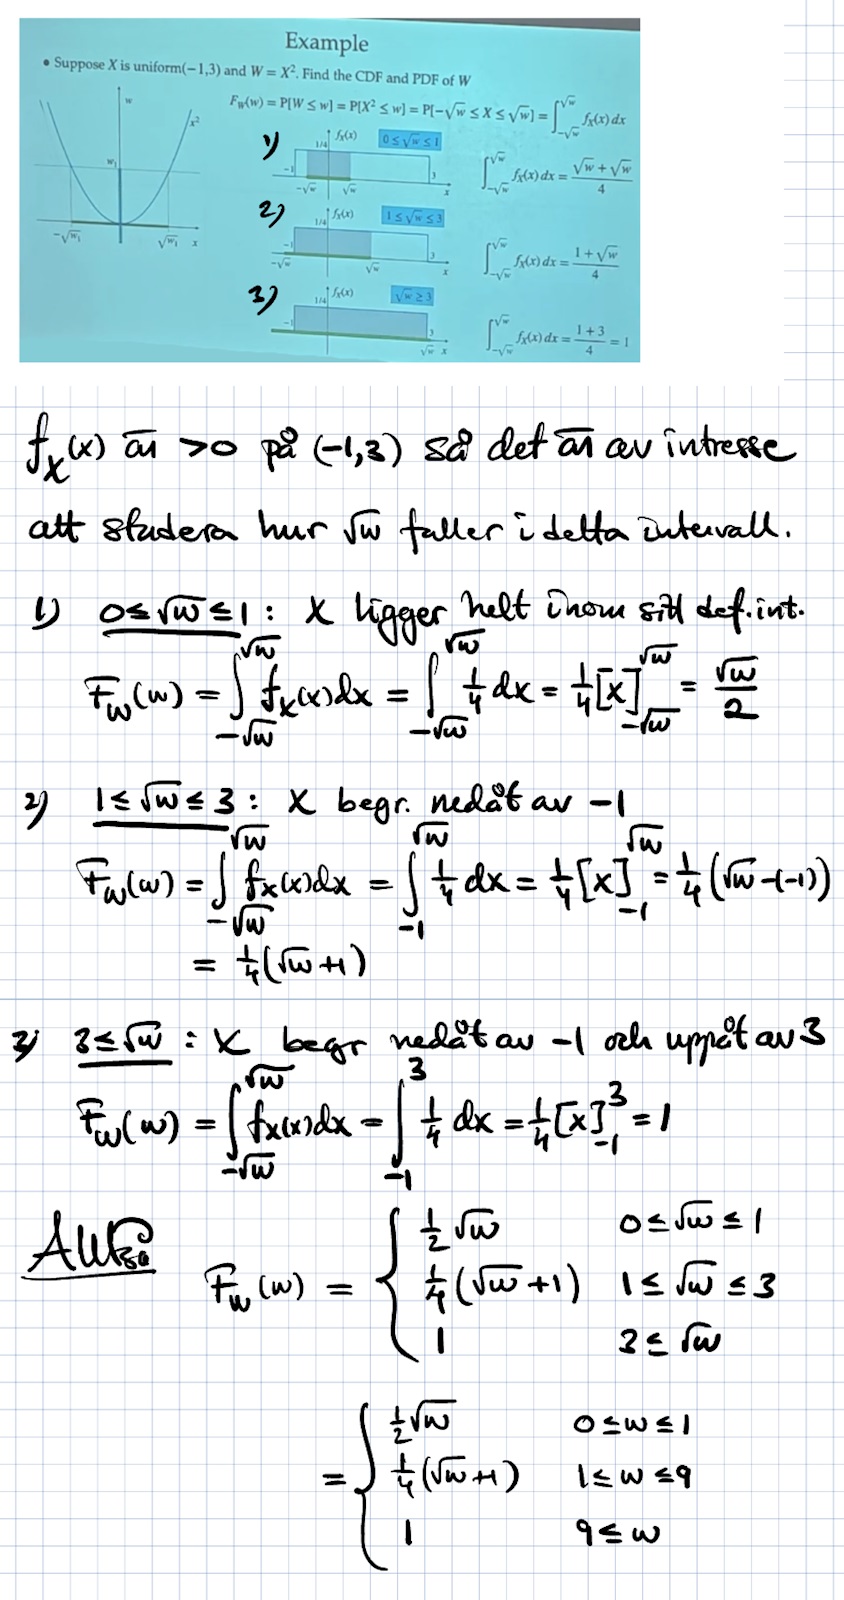 Example
• Suppose X is uniform(−1,3) and W = X². Find the CDF and PDF of W
F_W(w) = P[W ≤ w] = P[X² ≤ w] = P[−√w ≤ X ≤ √w] = ∫_{−√w}^{√w} f_X(x) dx
w
x²
w₁
−√w₁ √w₁ x
1) 1/4 f_X(x) 0 ≤ √w ≤ 1
−1 3
−√w √w x
∫_{−√w}^{√w} f_X(x) dx = (√w + √w)/4
2) 1/4 f_X(x) 1 ≤ √w ≤ 3
−1 3
−√w √w x
∫_{−√w}^{√w} f_X(x) dx = (1 + √w)/4
3) 1/4 f_X(x) √w ≥ 3
−1 3
√w x
∫_{−√w}^{√w} f_X(x) dx = (1 + 3)/4 = 1
f_X(x) är >0 på (−1,3) så det är av intresse
att studera hur √w faller i detta intervall.
1) 0≤√w≤1 : X ligger helt inom sitt def.int.
F_W(w) = ∫_{−√w}^{√w} f_X(x)dx = ∫_{−√w}^{√w} 1/4 dx = 1/4 [x]_{−√w}^{√w} = √w/2
2) 1≤√w≤3 : X begr. nedåt av −1
F_W(w) = ∫_{−√w}^{√w} f_X(x)dx = ∫_{−1}^{√w} 1/4 dx = 1/4 [x]_{−1}^{√w} = 1/4 (√w−(−1))
= 1/4 (√w+1)
3) 3≤√w : X begr nedåt av −1 och uppåt av 3
F_W(w) = ∫_{−√w}^{√w} f_X(x)dx = ∫_{−1}^{3} 1/4 dx = 1/4 [x]_{−1}^{3} = 1
F_W(w) = { 1/2 √w 0≤√w≤1
1/4 (√w+1) 1≤√w≤3
1 3≤√w
= { 1/2 √w 0≤w≤1
1/4 (√w+1) 1≤w≤9
1 9≤w